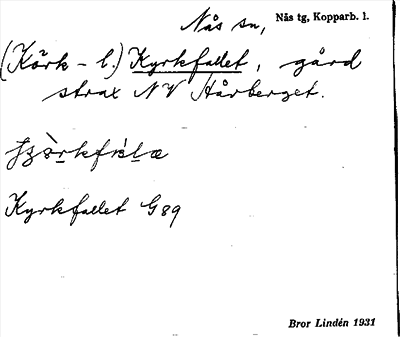 Nås sn, Nås tg, Kopparb. l.
(Körk- l.) Kyrkfallet, gård
strax NV Hårberget.
Kyrkfallet G89
Bror Lindén 1931